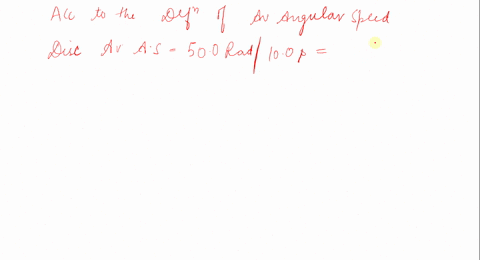 Acc to the Defⁿ of Av Angular Speed
Disc Av A.S = 50.0 Rad/10.0 s =